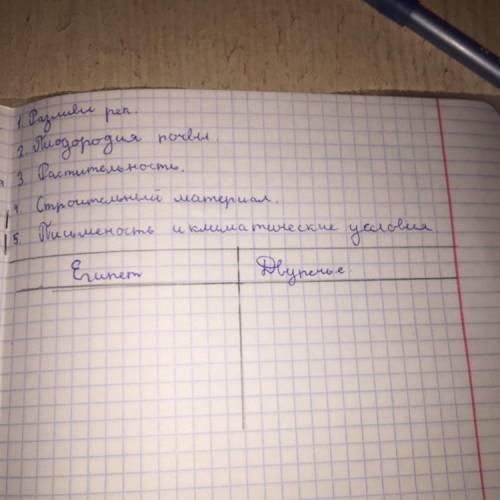 1. Разливы рек.
2. Плодородия почвы.
3. Растительность.
4. Строительный материал.
5. Письменость и климатические условия
Египет Двуречье